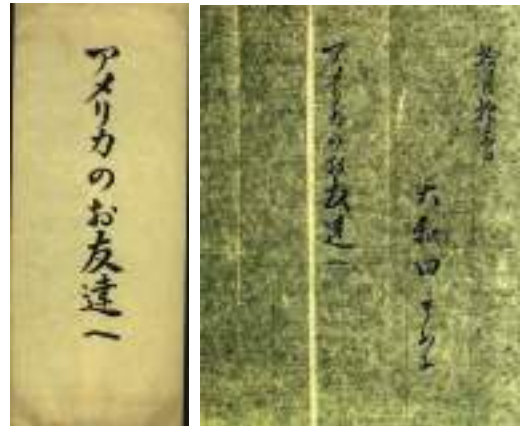 アメリカのお友達へ
大和田
アメリカのお友達へ